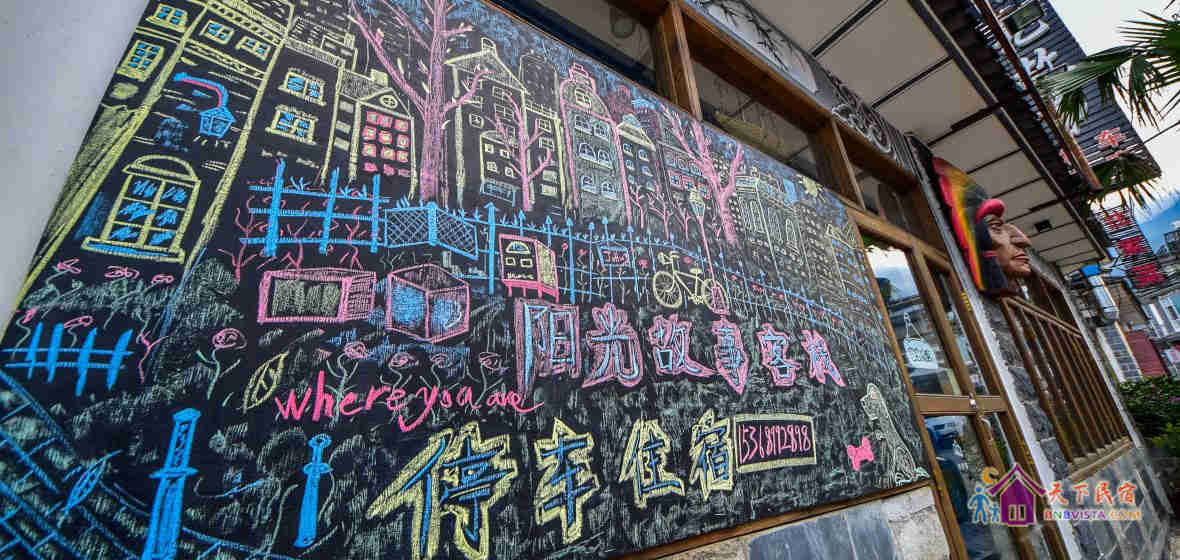 阳光故事客栈
where you are
停车住宿
天下民宿
BNBVISTA.COM